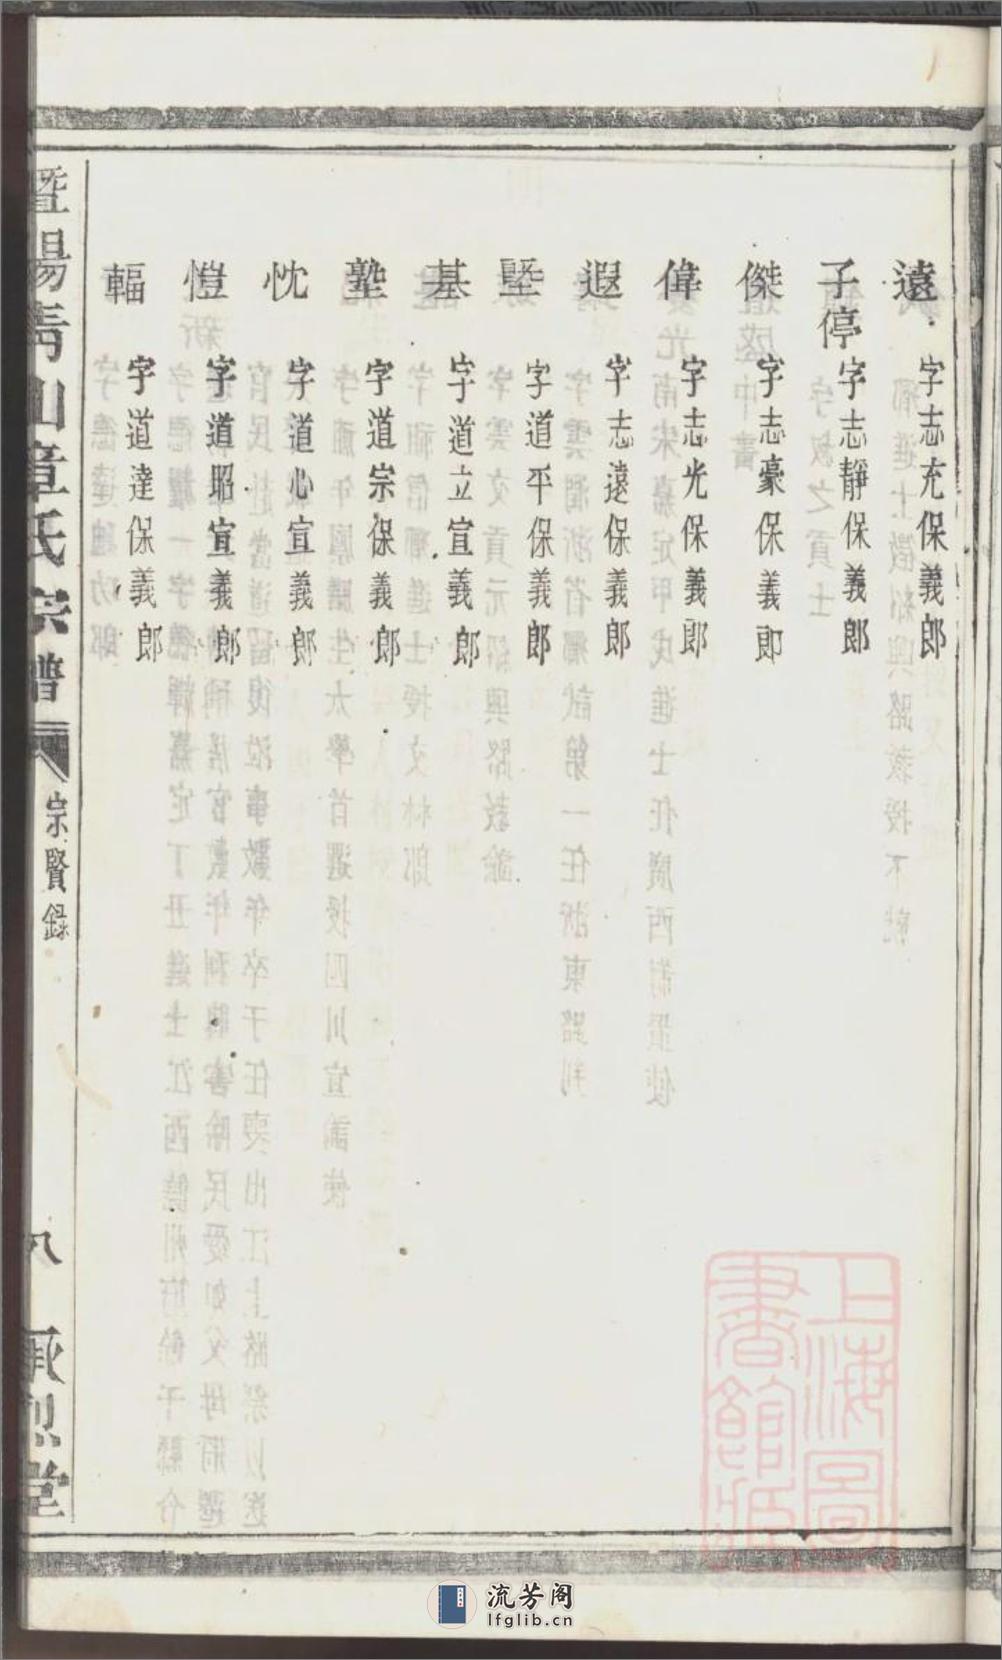 遠 字志充保義郎
子停 字志靜保義郎
傑 字志豪保義郎
偉 字志光保義郎
遐 字志遠保義郎
塈 字道平保義郎
基 字道立宣義郎
塾 字道宗保義郎
忱 字道心宣義郎
愷 字道昭宣義郎
輻 字道達保義郎
暨陽青山章氏宗譜 宗賢錄 八 承烈堂
上海圖書館藏
流芳阁
lfglib.cn